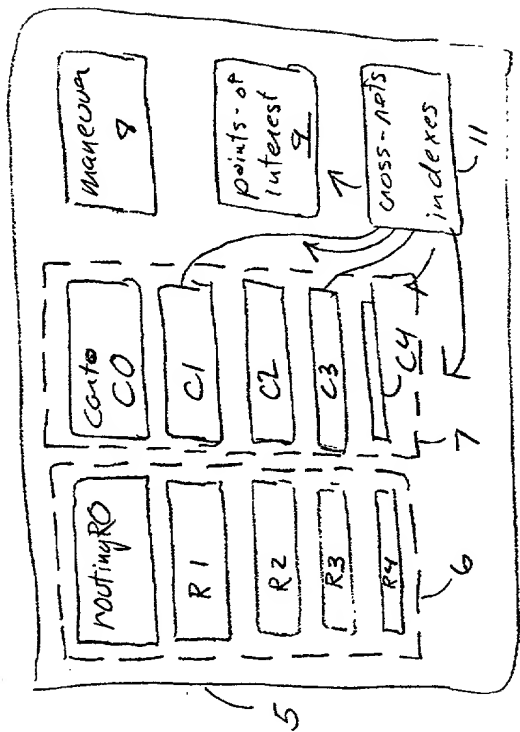 routing R0
R1
R2
R3
R4
6
5
carto
C0
C1
C2
C3
C4
7
maneuver
8
points-of
interest
9
cross-refs
indexes
11